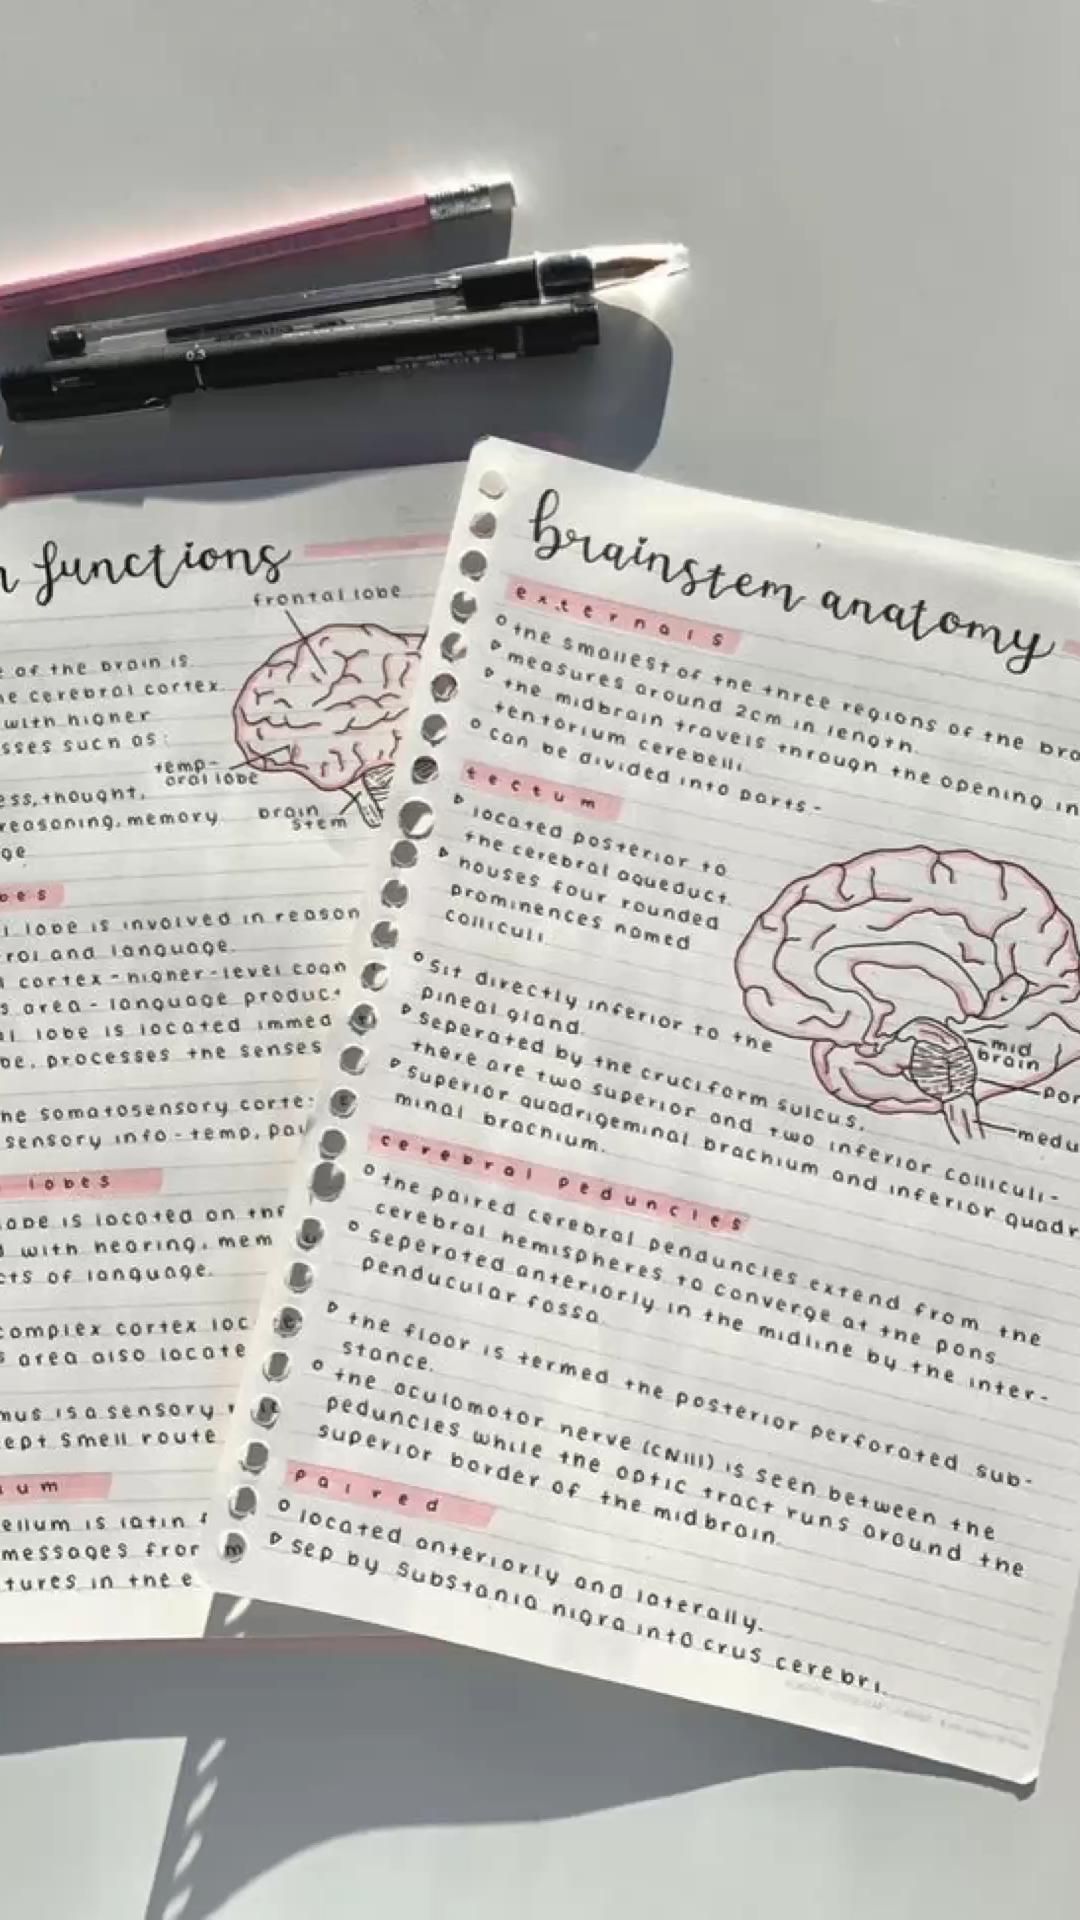 0.3
functions
frontal lobe
e of the brain is
he cerebral cortex.
with higher
sses such as:
temp-
oral lobe
ess, thought,
reasoning, memory
ge
brain
stem
bes
l lobe is involved in reason
rol and language.
l cortex - higher-level cogn
s area - language produc
al lobe is located immed
be, processes the senses
he somatosensory corte
sensory info - temp, pai
lobes
lobe is located on the
d with hearing, mem
cts of language.
complex cortex loc
s area also locate
mus is a sensory
ept smell route
um
ellum is latin f
messages from
tures in the e
brainstem anatomy
externals
the smallest of the three regions of the bra
measures around 2cm in length.
the midbrain travels through the opening in
tentorium cerebelli.
can be divided into parts -
tectum
located posterior to
the cerebral aqueduct.
houses four rounded
prominences named
colliculi.
Sit directly inferior to the
pineal gland.
seperated by the cruciform sulcus.
there are two superior and two inferior colliculi-
superior quadrigeminal brachium and inferior quadr
minal brachium.
mid
brain
pon
medu
cerebral peduncles
the paired cerebral penduncles extend from the
cerebral hemispheres to converge at the pons
seperated anteriorly in the midline by the inter-
penducular fossa.
the floor is termed the posterior perforated sub-
stance.
the oculomotor nerve (CNIII) is seen between the
peduncles while the optic tract runs around the
superior border of the midbrain.
paired
located anteriorly and laterally.
sep by Substania nigra into crus cerebri.